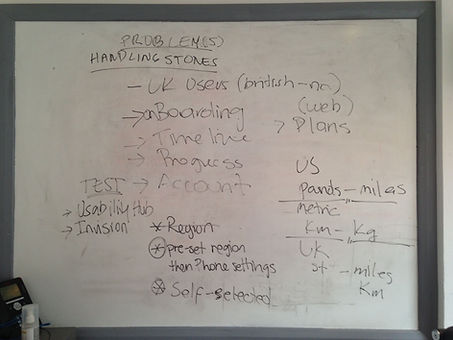 PROBLEM(S)
HANDLING STONES
- UK Users (british-na)
(web)
→ onBoarding
> Plans
→ Timeline
→ Progress
→ Account
TEST
→ UsabilityHub
→ Invision
* Region
* pre-set region
then Phone settings
* Self-selected
US
pounds - miles
metric
Km - Kg
UK
st - miles
Km